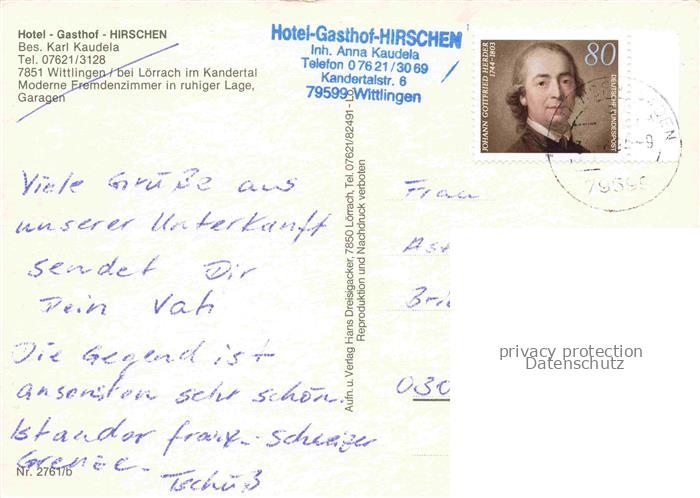 Hotel - Gasthof - HIRSCHEN
Bes. Karl Kaudela
Tel. 07621/3128
7851 Wittlingen / bei Lörrach im Kandertal
Moderne Fremdenzimmer in ruhiger Lage,
Garagen
Hotel-Gasthof-HIRSCHEN
Inh. Anna Kaudela
Telefon 0 76 21 / 30 69
Kandertalstr. 6
79599 Wittlingen
80
JOHANN GOTTFRIED HERDER
1744-1803
DEUTSCHE BUNDESPOST
Viele Grüße aus
unserer Unterkunft
sendet Dir
Dein Vati
Die Gegend ist
ansonsten sehr schön.
Ist an der franz.-schweizer
Grenze.
Tschüß
Nr. 2761/b
Aufn. u. Verlag Hans Dreisigacker, 7850 Lörrach, Tel. 07621/82491 - L
Reproduktion und Nachdruck verboten
Frau
030
privacy protection
Datenschutz